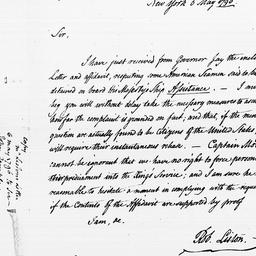 New York 6 May 1796.
Sir,
I have just received from Governor Jay the enclo
Letter and affidavit, respecting some American Seamen said to be
detained on board his Majesty's Ship Assistance. — I mu
beg you will without delay take the necessary measures to as
how far the complaint is grounded in fact; and that, if the men
question are actually found to be Citizens of the United States,
will require their instantaneous release. — Captain Mo
cannot be ignorant that we have no right to force persons
this predicament into the King's Service; and I am sure he
reasonable to hesitate a moment in complying with the reque
if the Contents of the Affidavit are supported by proof
I am, &c.
Rob. Liston.
Copy
Mr. Listons letter
6 May 1796 to